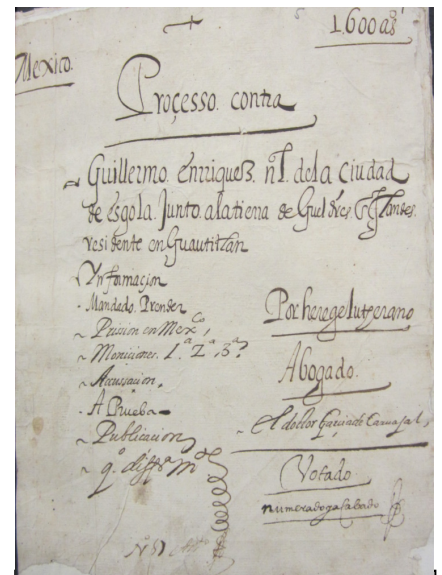 1.600 as
Mexico.
Proçesso. contra
Guillermo. Enrriquez. nl. dela Ciudad
de Esgola. Junto. alatierra de Gueldres
residente en Guautitlan
Ynformaçion
Mandado. Prender
Prision en Mexco,
Moniciones. 1ª 2ª 3ª
Accusacion,
A Prueba
Publicacion
Por herege luterano
Abogado.
El doctor Garcia de Carvajal,
Votado
numerado y acabado